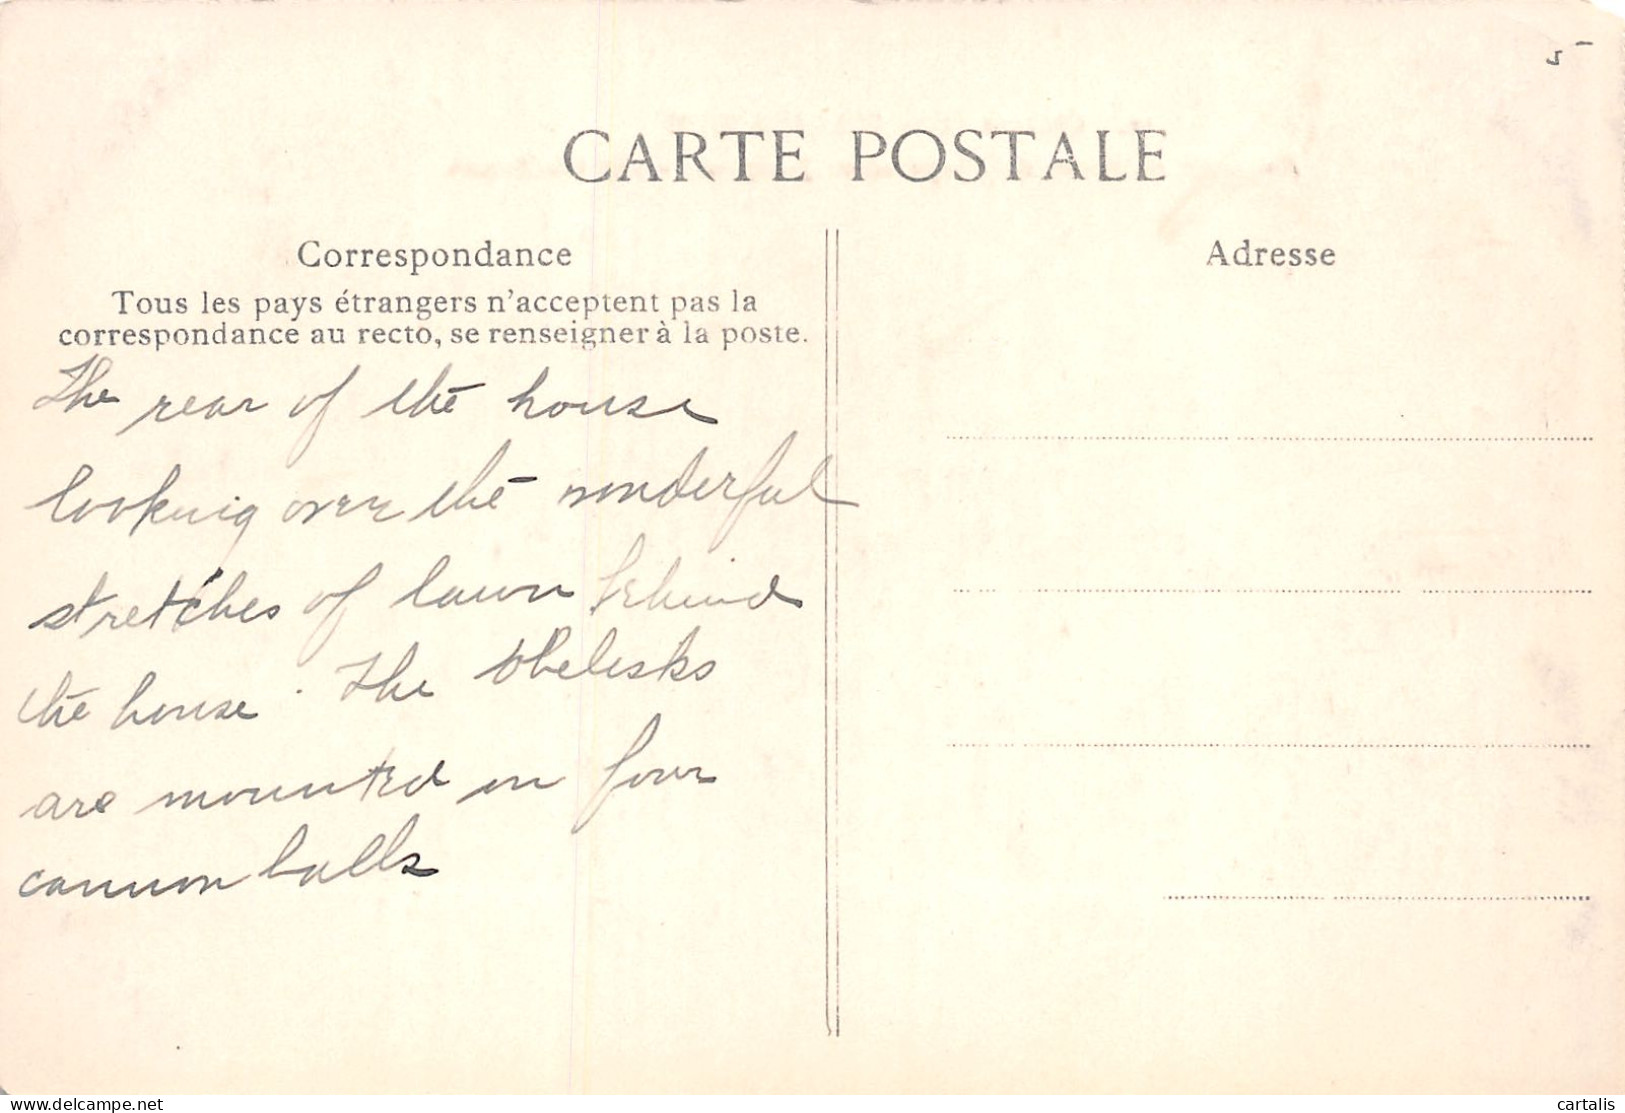 CARTE POSTALE
Correspondance
Tous les pays étrangers n'acceptent pas la
correspondance au recto, se renseigner à la poste.
The rear of the house
looking over the wonderful
stretches of lawn behind
the house. The obelisks
are mounted on four
cannon balls
Adresse
5-
delcampe.net
cartalis